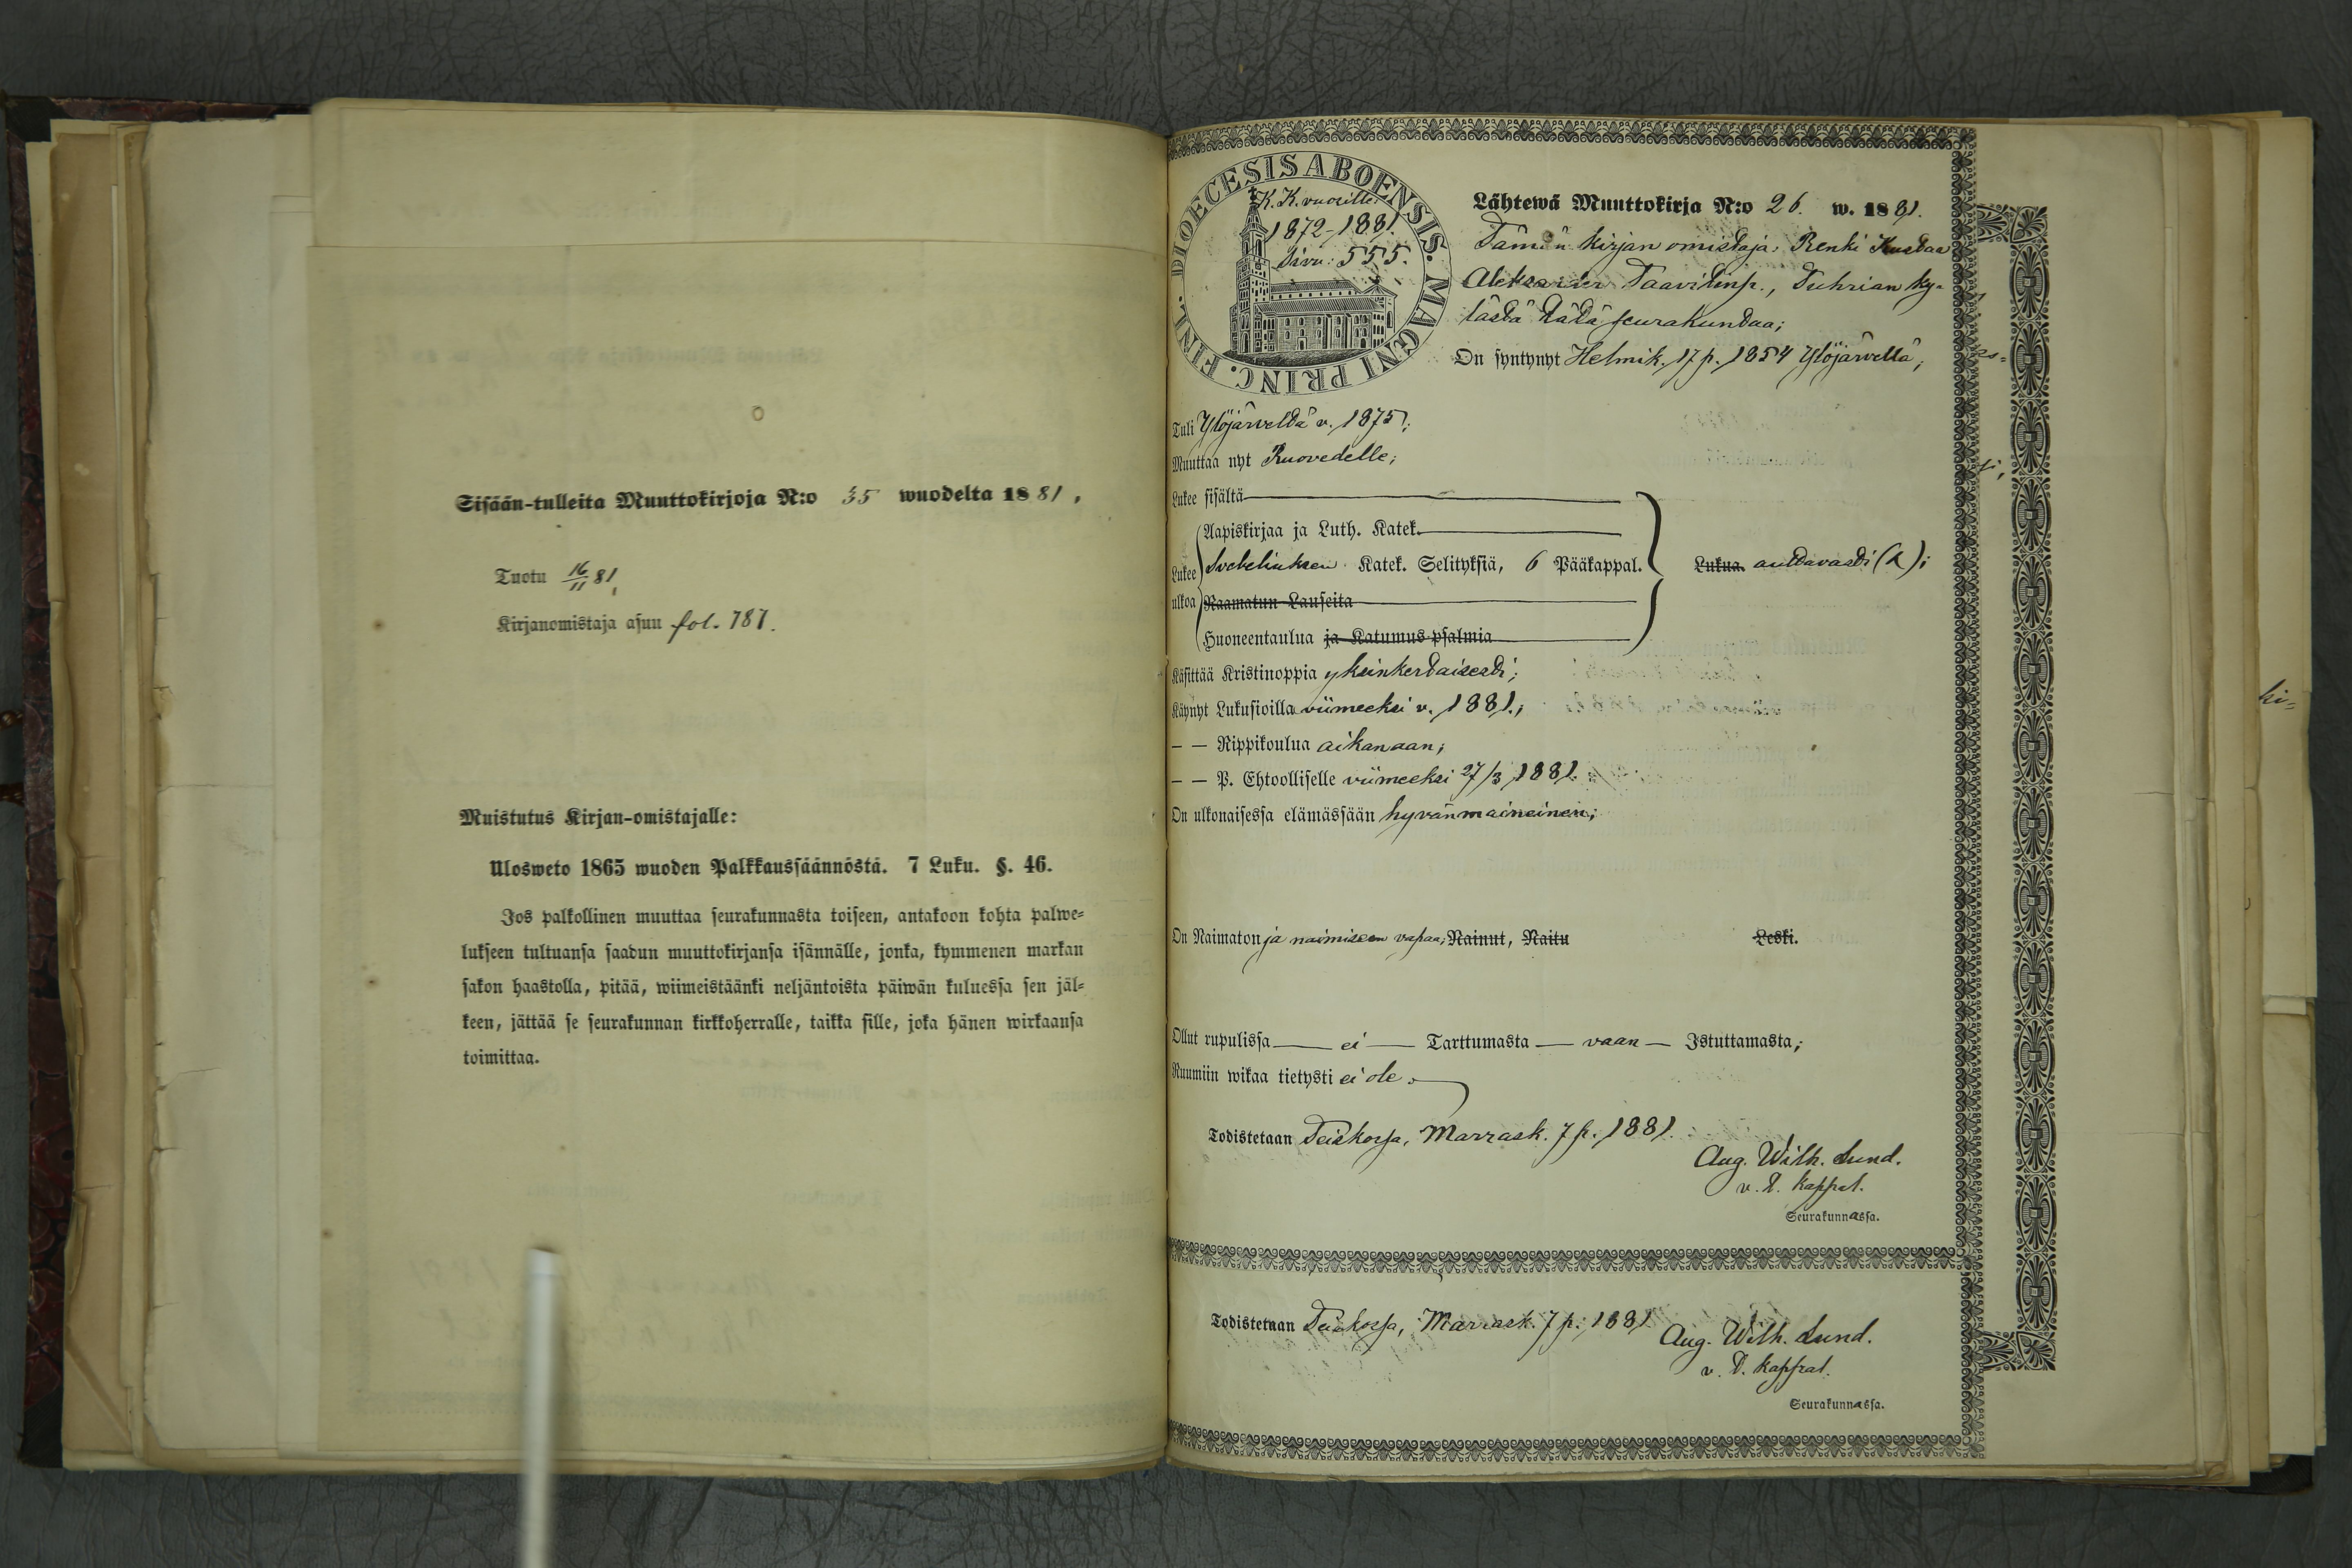 Sisään-tulleita Muuttokirjoja N:o 35 wuodelta 1881,
Tuotu 16/11 81,
Kirjanomistaja asuu fol. 787.
Muistutus Kirjan-omistajalle:
Ulosweto 1865 wuoden Palkkaussäännöstä. 7 Luku. §. 46.
Jos palkollinen muuttaa seurakunnasta toiseen, antakoon kohta palwe-
lukseen tultuansa saadun muuttokirjansa isännälle, jonka, kymmenen markan
sakon haastolla, pitää, wiimeistäänki neljäntoista päiwän kuluessa sen jäl-
keen, jättää se seurakunnan kirkkoherralle, taikka sille, joka hänen wirkaansa
toimittaa.
DIOECESIS ABOENSIS. MAGNI PRINC. FINL.
K. K. vuosille:
1872-1881.
Sivu: 555.
Lähtewä Muuttokirja N:o 26. w. 1881.
Tämän kirjan omistaja: Renki Kustaa
Aleksander Taavitinp., Tuhrian ky-
lästä tätä seurakuntaa;
On syntynyt Helmik. 17 p. 1854 Ylöjärvellä;
Tuli Ylöjärveltä v. 1875;
Muuttaa nyt Ruovedelle;
Lukee sisältä
Aapiskirjaa ja Luth. Katek.
Lukee ulkoa Svebeliuksen Katek. Selityksiä, 6 Pääkappal. Lukua. auttavasti (a);
Raamatun Lauseita
Huoneentaulua ja Katumus-psalmia
Käsittää Kristinoppia yksinkertaisesti;
Käynyt Lukusioilla viimeeksi v. 1881.;
— — Rippikoulua aikanaan;
— — P. Ehtoolliselle viimeeksi 27/3 1881.
On ulkonaisessa elämässään hyvänmaineinen;
On Naimaton ja naimiseen vapaa; Nainut, Naitu Leski.
Ollut rupulissa — ei — Tarttumasta — vaan — Istuttamasta;
Ruumiin wikaa tietysti ei ole.
Todistetaan Teiskossa, Marrask. 7 p. 1881.
Aug. Wilh. Lund.
v. t. kappal.
Seurakunnassa.
Todistetaan Teiskossa, Marrask. 7 p. 1881
Aug. Wilh. Lund.
v. t. kappal.
Seurakunnassa.
ki-